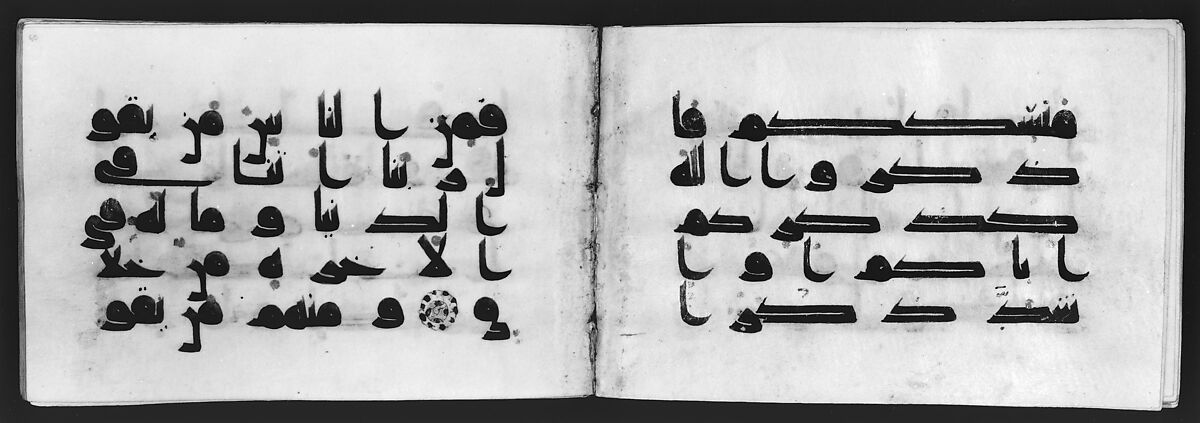 منسككم فا
ذكروا الله
كذكركم
اباكم او ا
شد ذكرا
فمن الناس من يقو
ل ربنا اتنا في
الدنيا وما له في
الاخرة من خلا
ق ومنهم من يقو